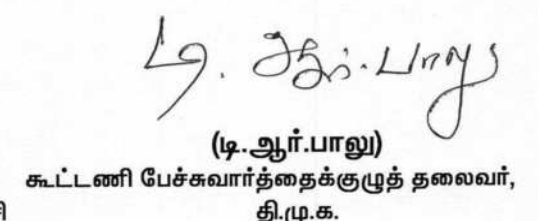 டி. ஆர். பாலு
(டி.ஆர்.பாலு)
கூட்டணி பேச்சுவார்த்தைக்குழுத் தலைவர்,
தி.மு.க.